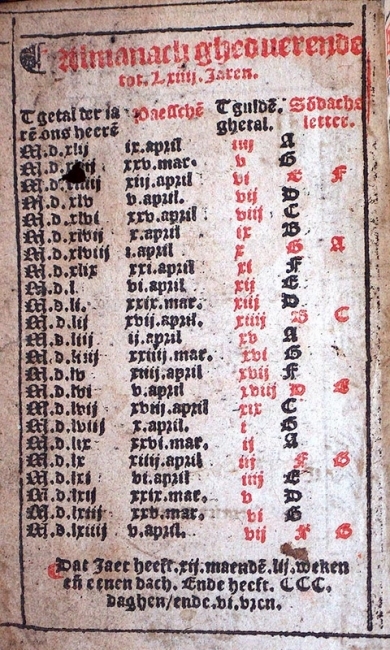 Almanach gheduerende
tot. Lxiiij. Jaren.
T getal der ia Paesschē T guldē. Sōdachs
rē ons heerē ghetal. letter.
M.d.xlij ix.april iiij A
M.d.xliij xxv.mar. v G
M.d.xliiij xiij.april vi E F
M.d.xlv v.april. vij D
M.d.xlvi xxv.april viij C
M.d.xlvij x.april ix B
M.d.xlviij i.april x G A
M.d.xlix xxi.april xi F
M.d.l. vi.april xij E
M.d.li. xxix.mar. xiij D
M.d.lij xvij.april. xiiij B C
M.d.liij ii.april xv A
M.d.liiij xxiiij.mar. xvi G
M.d.lv xiiij.april xvij F
M.d.lvi v.april xviij D
M.d.lvij xviij.april xix C
M.d.lviij x.april. i
M.d.lix xxvi.mar. ij A
M.d.lx xiiij.april iij F G
M.d.lxi vi.april iiij E
M.d.lxij xxix.mar. v D
M.d.lxiij xxv.mar. vi
M.d.lxiiij v.april. vij G
Dat Jaer heeft.xij.maendē.lij.weken
eñ eenen dach. Ende heeft. CCC.
daghen/ende.vi.vren.